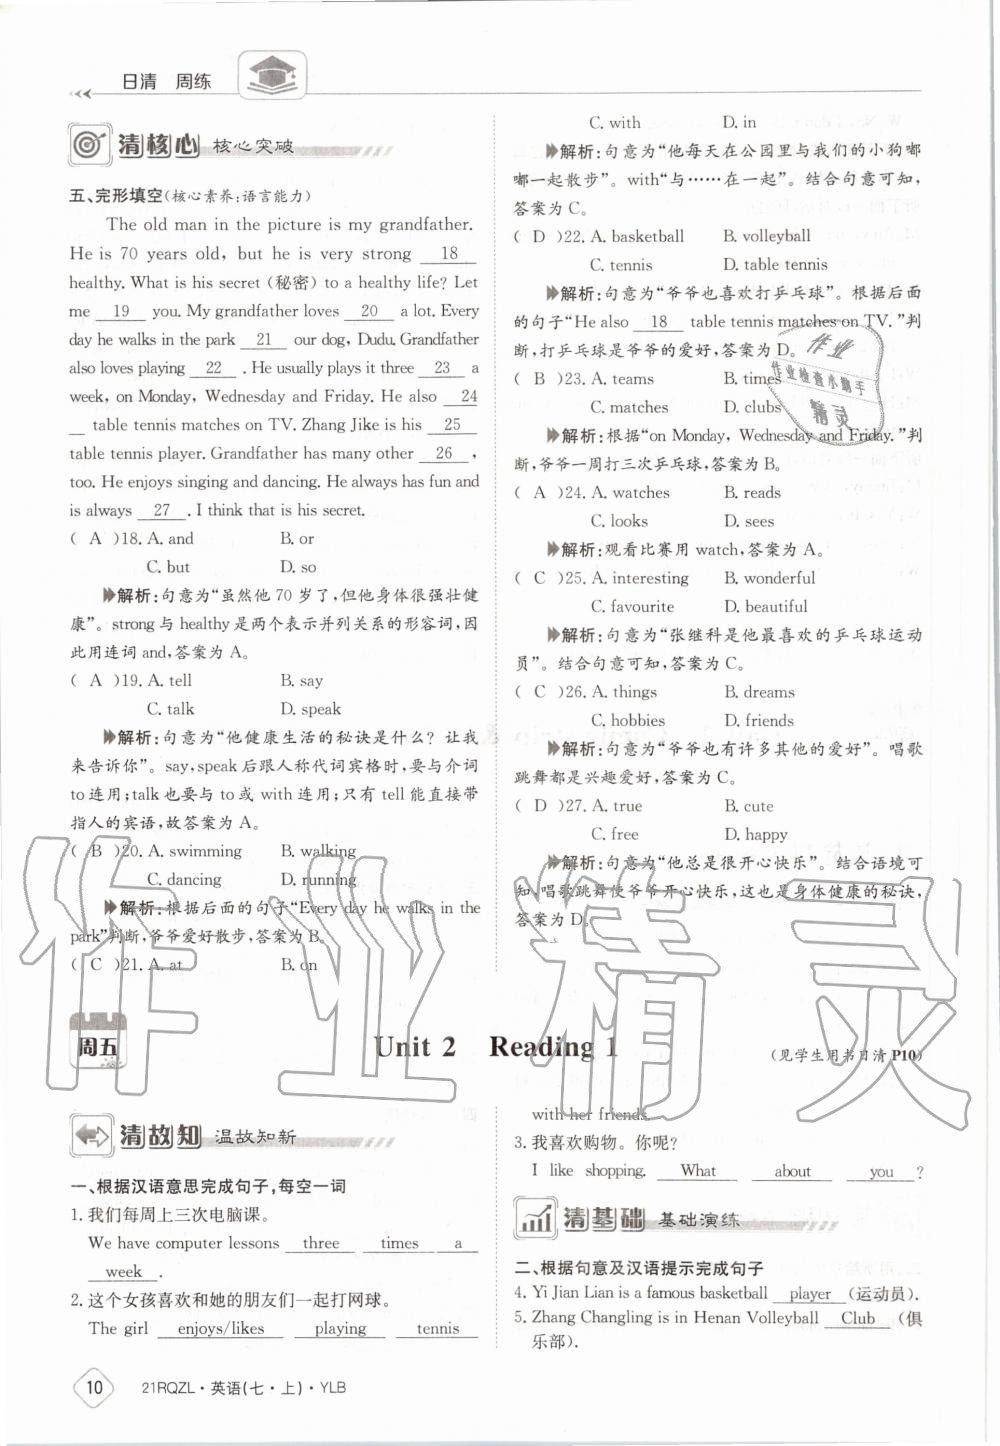 日清 周练
清核心 核心突破
五、完形填空(核心素养:语言能力)
The old man in the picture is my grandfather.
He is 70 years old, but he is very strong 18
healthy. What is his secret (秘密) to a healthy life? Let
me 19 you. My grandfather loves 20 a lot. Every
day he walks in the park 21 our dog, Dudu. Grandfather
also loves playing 22 . He usually plays it three 23 a
week, on Monday, Wednesday and Friday. He also 24
table tennis matches on TV. Zhang Jike is his 25
table tennis player. Grandfather has many other 26 ,
too. He enjoys singing and dancing. He always has fun and
is always 27 . I think that is his secret.
( A )18. A. and B. or
C. but D. so
解析:句意为“虽然他 70 岁了,但他身体很强壮健
康”。strong 与 healthy 是两个表示并列关系的形容词,因
此用连词 and,答案为 A。
( A )19. A. tell B. say
C. talk D. speak
解析:句意为“他健康生活的秘诀是什么? 让我
来告诉你”。say,speak 后跟人称代词宾格时,要与介词
to 连用;talk 也要与 to 或 with 连用;只有 tell 能直接带
指人的宾语,故答案为 A。
( B )20. A. swimming B. walking
C. dancing D. running
解析:根据后面的句子“Every day he walks in the
park”判断,爷爷爱好散步,答案为 B。
( C )21. A. at B. on
C. with D. in
解析:句意为“他每天在公园里与我们的小狗嘟
嘟一起散步”。with“与……在一起”。结合句意可知,
答案为 C。
( D )22. A. basketball B. volleyball
C. tennis D. table tennis
解析:句意为“爷爷也喜欢打乒乓球”。根据后面
的句子“He also 18 table tennis matches on TV.”判
断,打乒乓球是爷爷的爱好,答案为 D。
( B )23. A. teams B. times
C. matches D. clubs
解析:根据“on Monday, Wednesday and Friday.”判
断,爷爷一周打三次乒乓球,答案为 B。
( A )24. A. watches B. reads
C. looks D. sees
解析:观看比赛用 watch,答案为 A。
( C )25. A. interesting B. wonderful
C. favourite D. beautiful
解析:句意为“张继科是他最喜欢的乒乓球运动
员”。结合句意可知,答案为 C。
( C )26. A. things B. dreams
C. hobbies D. friends
解析:句意为“爷爷也有许多其他的爱好”。唱歌
跳舞都是兴趣爱好,答案为 C。
( D )27. A. true B. cute
C. free D. happy
解析:句意为“他总是很开心快乐”。结合语境可
知,唱歌跳舞使爷爷开心快乐,这也是身体健康的秘诀,
答案为 D。
作业
作业检查小助手
精灵
作业精灵
周五 Unit 2 Reading 1 (见学生用书日清 P10)
清故知 温故知新
一、根据汉语意思完成句子,每空一词
1. 我们每周上三次电脑课。
We have computer lessons three times a
week .
2. 这个女孩喜欢和她的朋友们一起打网球。
The girl enjoys/likes playing tennis
with her friends.
3. 我喜欢购物。你呢?
I like shopping. What about you ?
清基础 基础演练
二、根据句意及汉语提示完成句子
4. Yi Jian Lian is a famous basketball player (运动员).
5. Zhang Changling is in Henan Volleyball Club (俱
乐部).
10 21RQZL·英语(七·上)·YLB